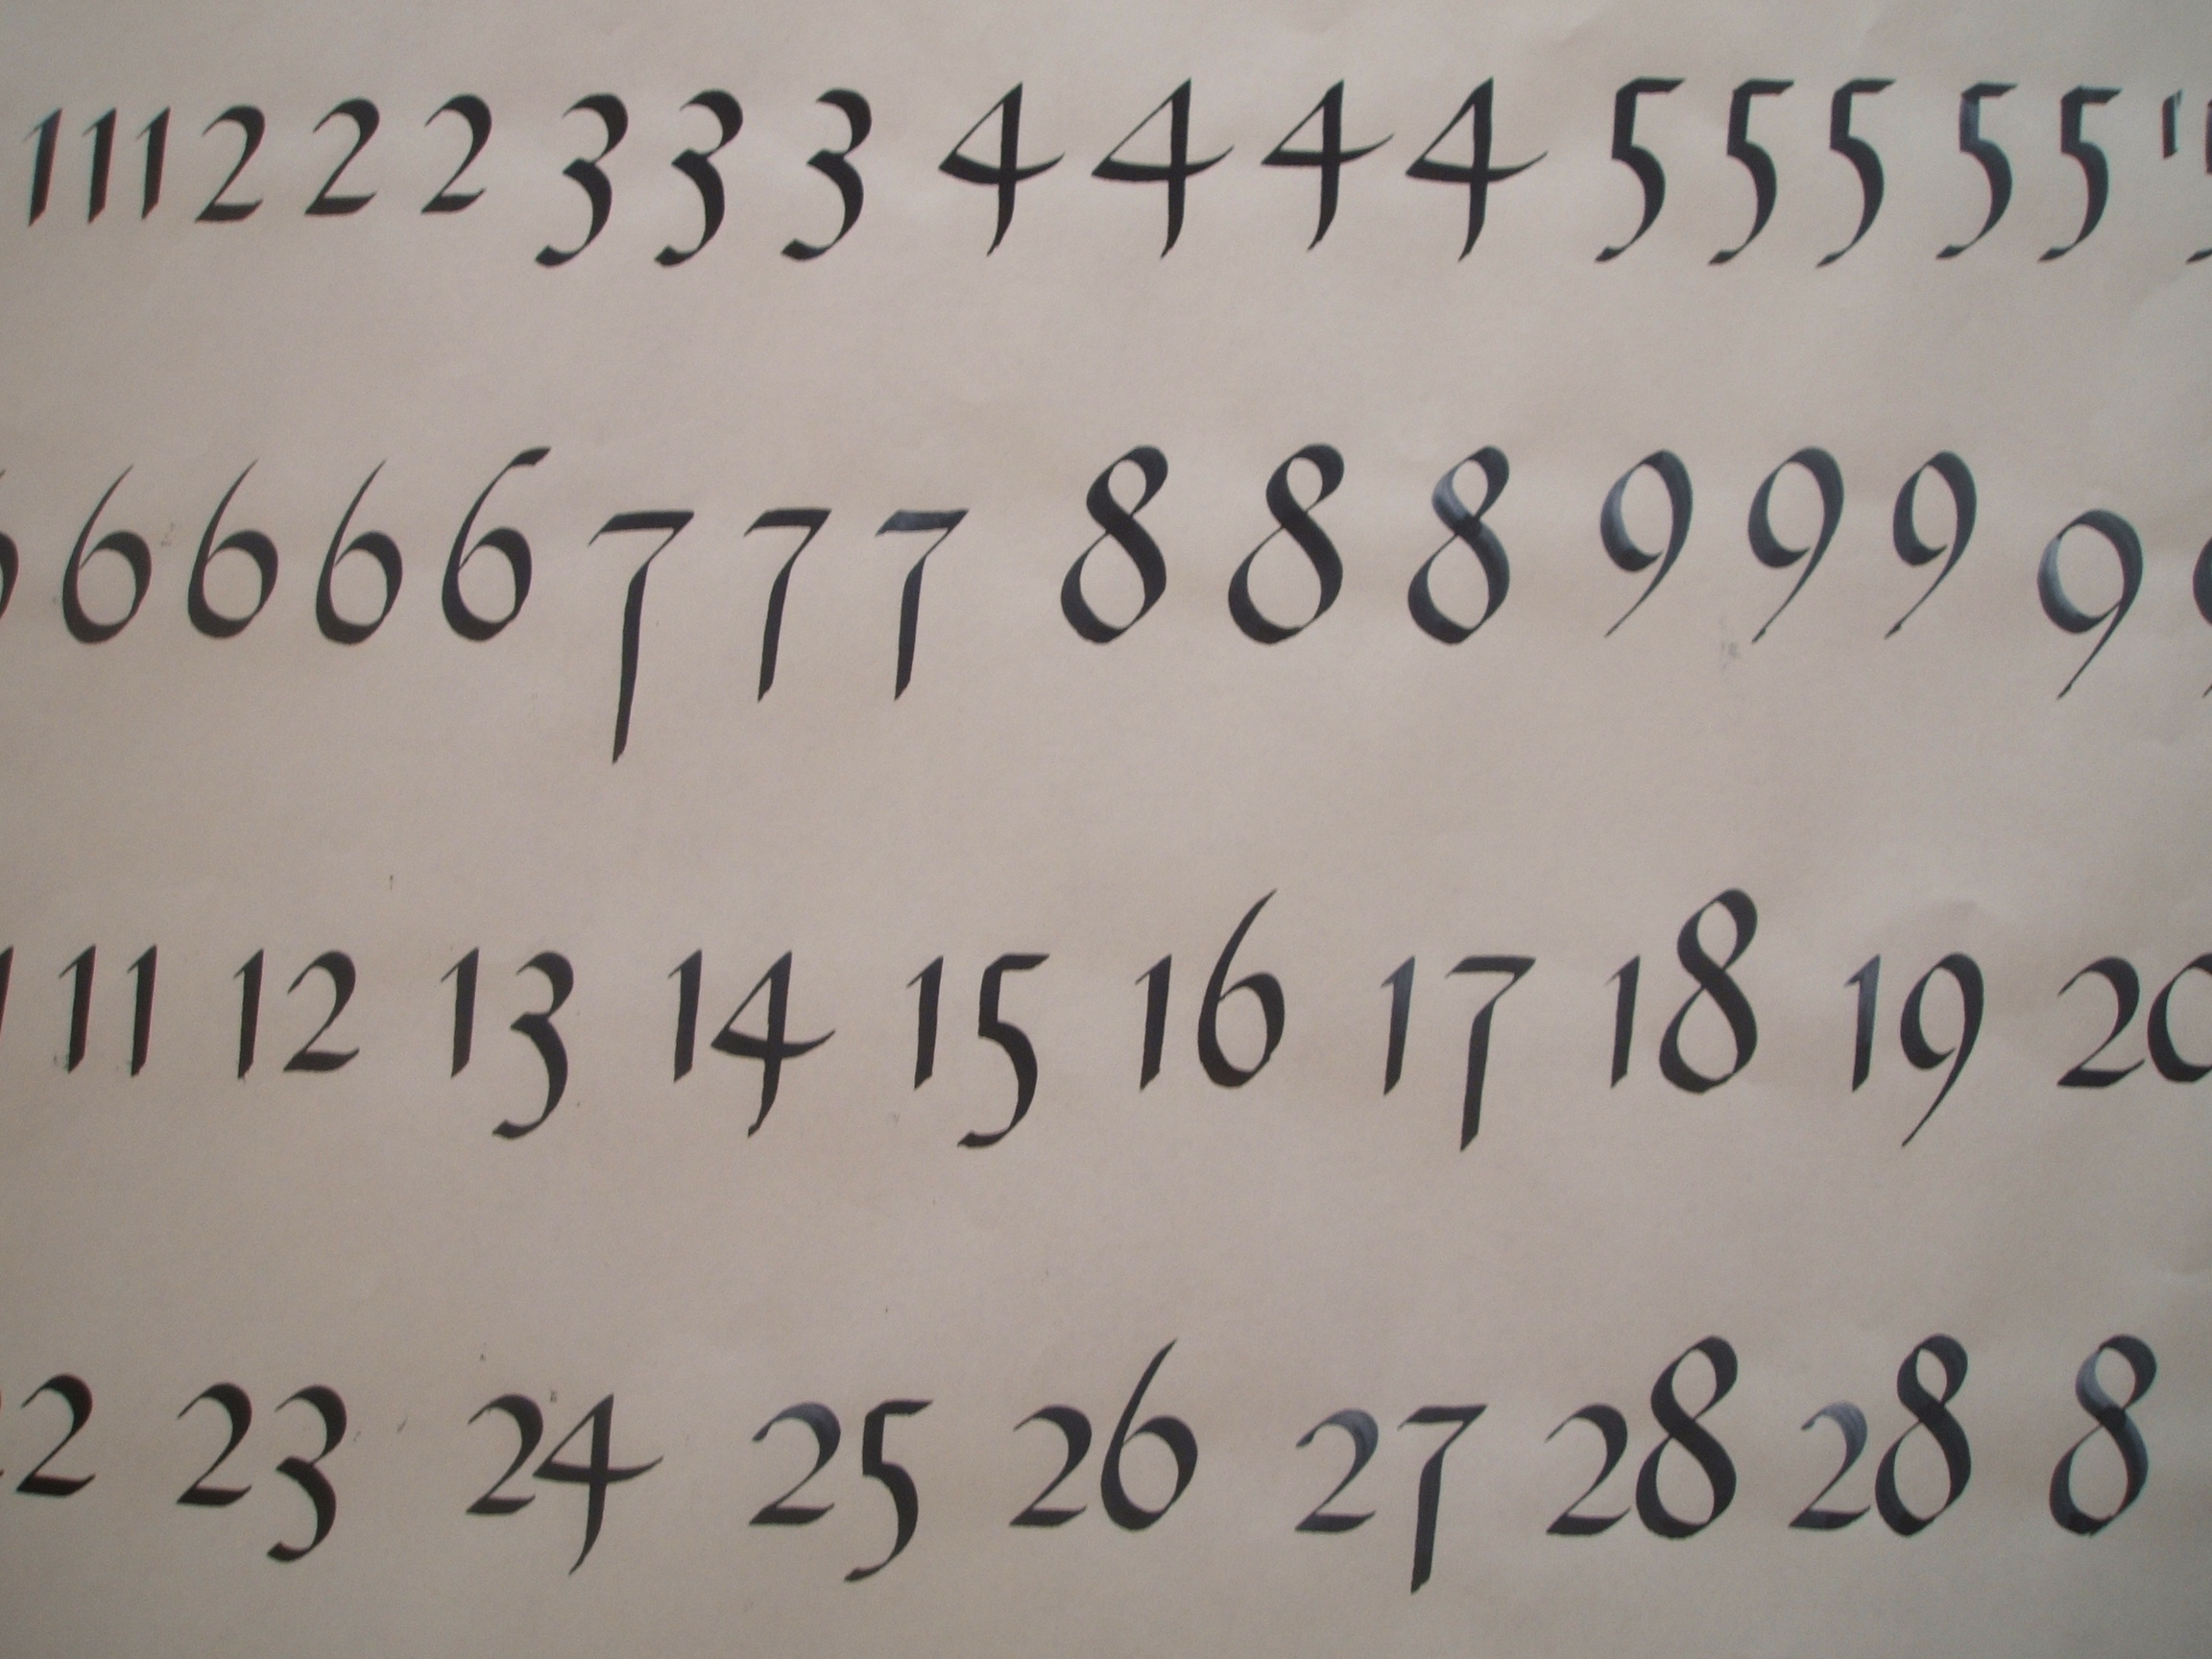 1 1 1 2 2 2 3 3 3 4 4 4 4 5 5 5 5 5
6 6 6 6 7 7 7 8 8 8 9 9 9 9
11 12 13 14 15 16 17 18 19 20
2 23 24 25 26 27 28 28 8